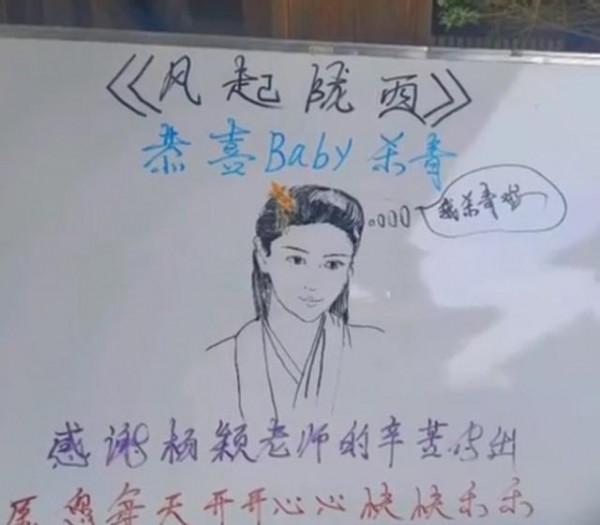 《风起陇西》
恭喜Baby杀青
我杀青啦
感谢杨颖老师的辛苦付出
愿您每天开开心心快快乐乐